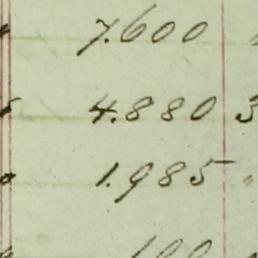 7.600
4.880 3
1.985 "